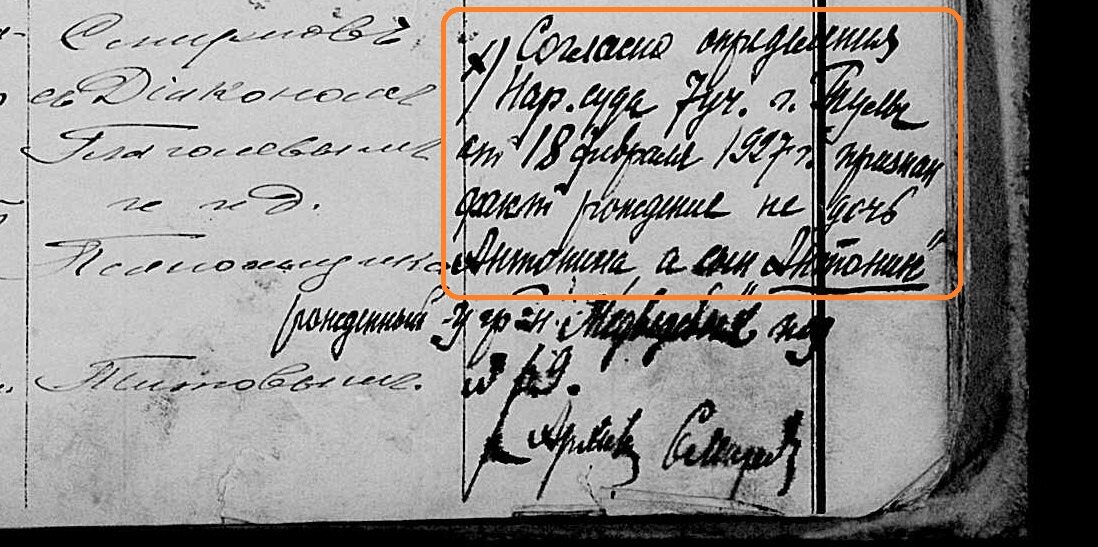 Смирновъ
съ Діакономъ
Глаголевымъ
и п. д.
Псаломщикъ
Титовымъ.
х) Согласно определения
Нар. суда 7 уч. г. Тулы
от 18 февраля 1927 г. признан
факт рождение не дочь
Антонина а сын „Антонин"
рожденный у гр-н. под
Смирнов